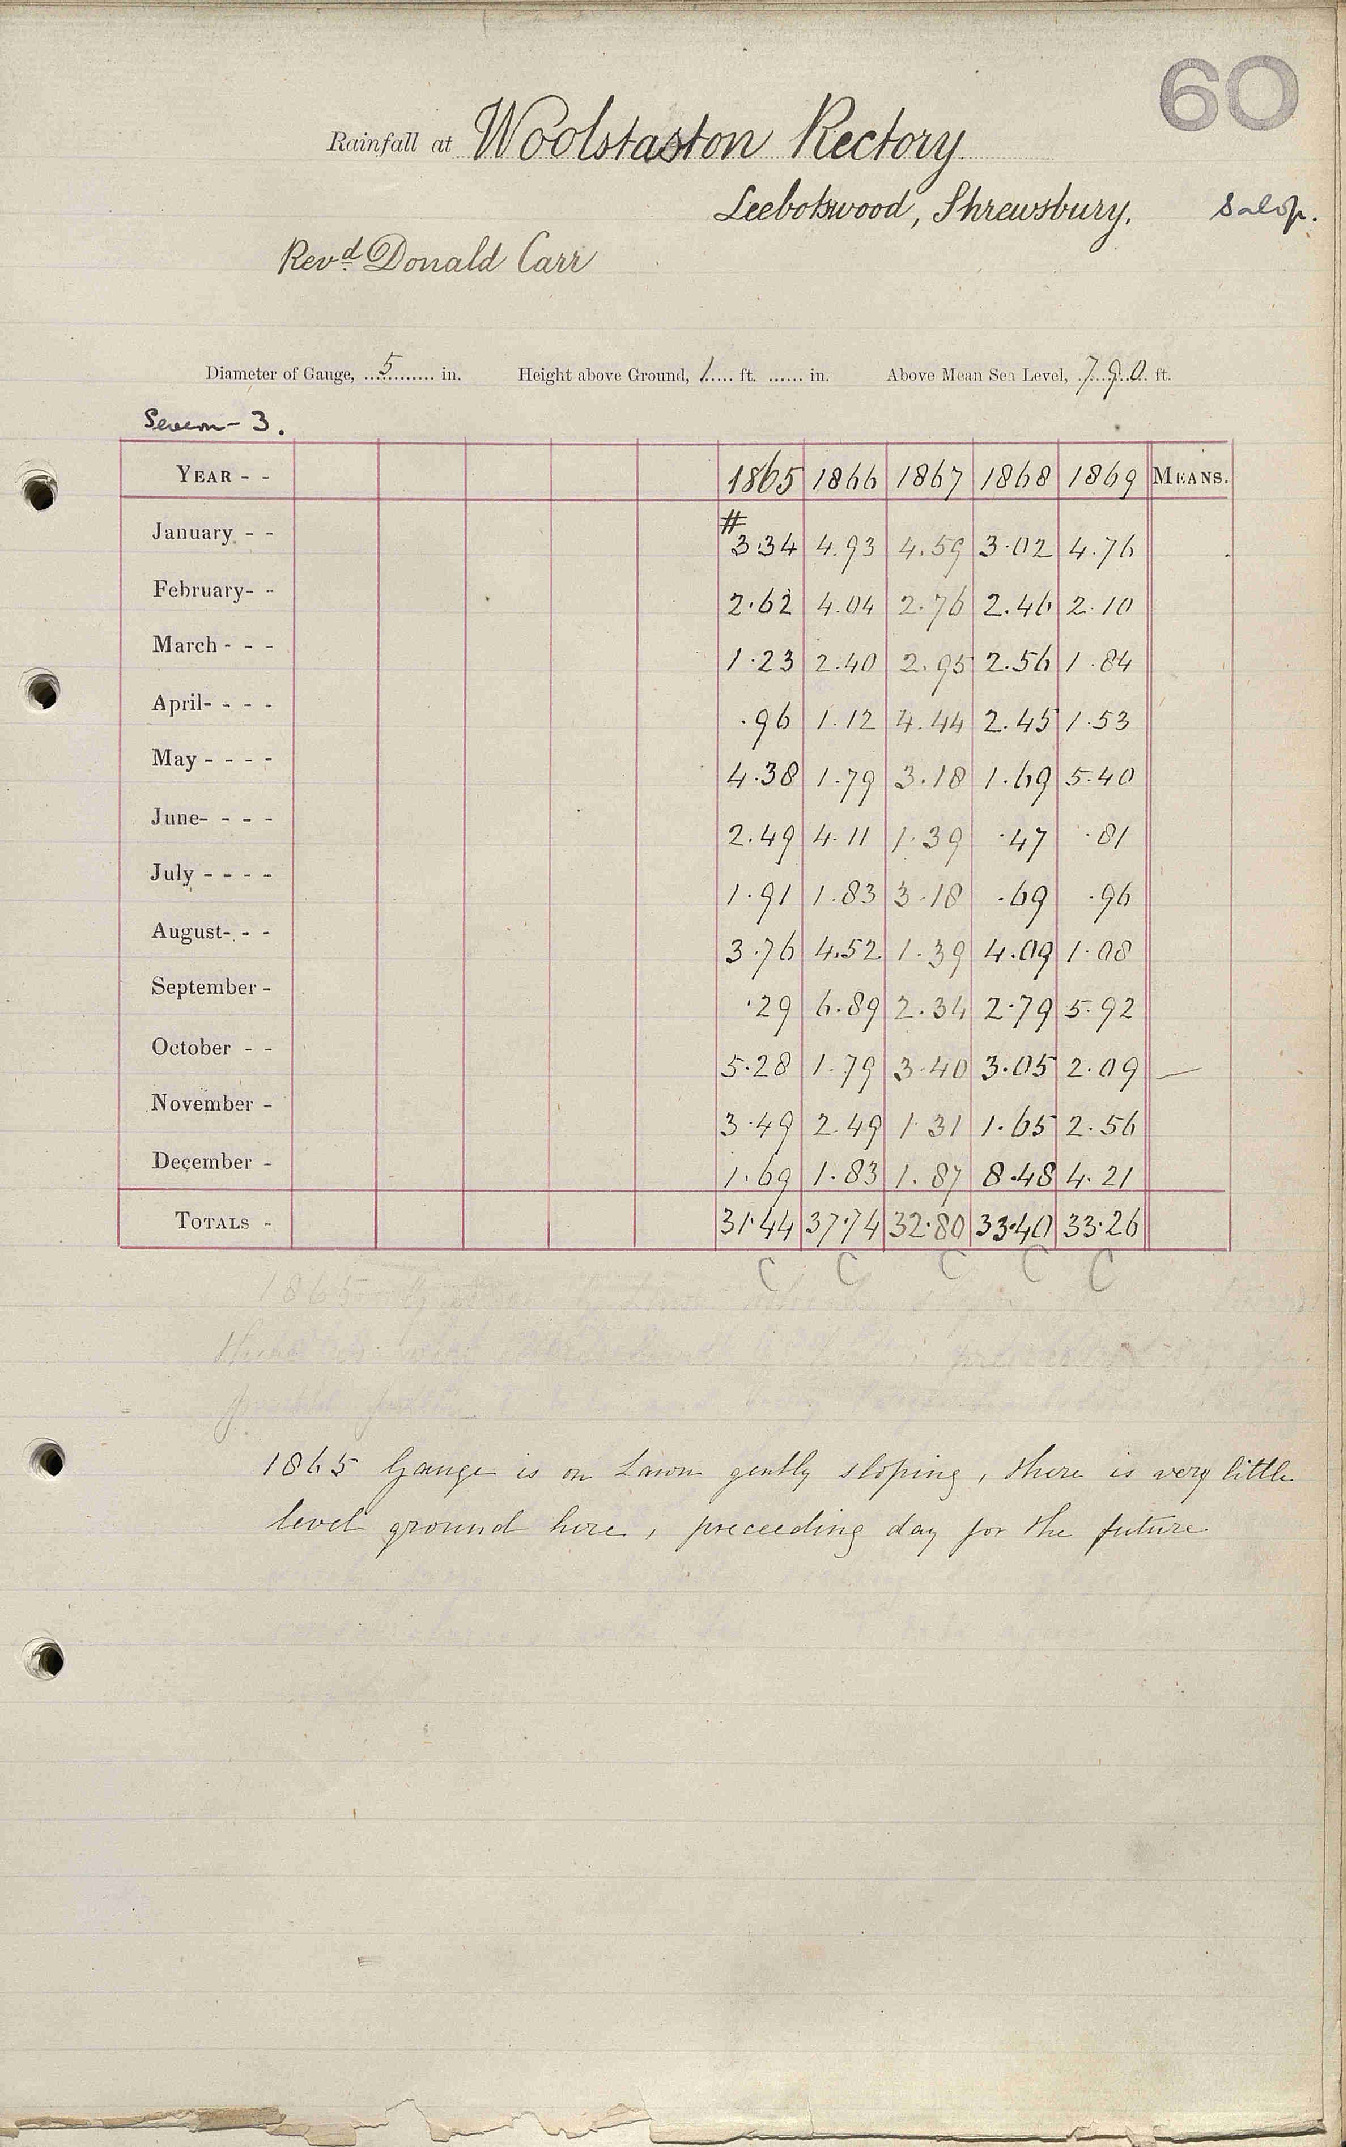 60
Rainfall at Woolstaston Rectory
Leebotswood, Shrewsbury. Salop.
Revd. Donald Carr
Diameter of Gauge, 5 in. Height above Ground, 1 ft. in. Above Mean Sea Level, 790 ft.
Severn - 3.
YEAR - - 1865 1866 1867 1868 1869 MEANS.
January - - # 3.34 4.93 4.59 3.02 4.76
February - - 2.62 4.04 2.76 2.46 2.10
March - - - 1.23 2.40 2.95 2.56 1.84
April - - - - .96 1.12 4.44 2.45 1.53
May - - - - 4.38 1.79 3.18 1.69 5.40
June - - - - 2.49 4.11 1.39 .47 .81
July - - - - 1.91 1.83 3.18 .69 .96
August - - - 3.76 4.52 1.39 4.09 1.08
September - .29 6.89 2.34 2.79 5.92
October - - 5.28 1.79 3.40 3.05 2.09 —
November - 3.49 2.49 1.31 1.65 2.56
December - 1.69 1.83 1.87 8.48 4.21
TOTALS - 31.44 37.74 32.80 33.40 33.26
C C C C C
1865 Gauge is on Lawn gently sloping, there is very little
level ground here, preceeding day for the future